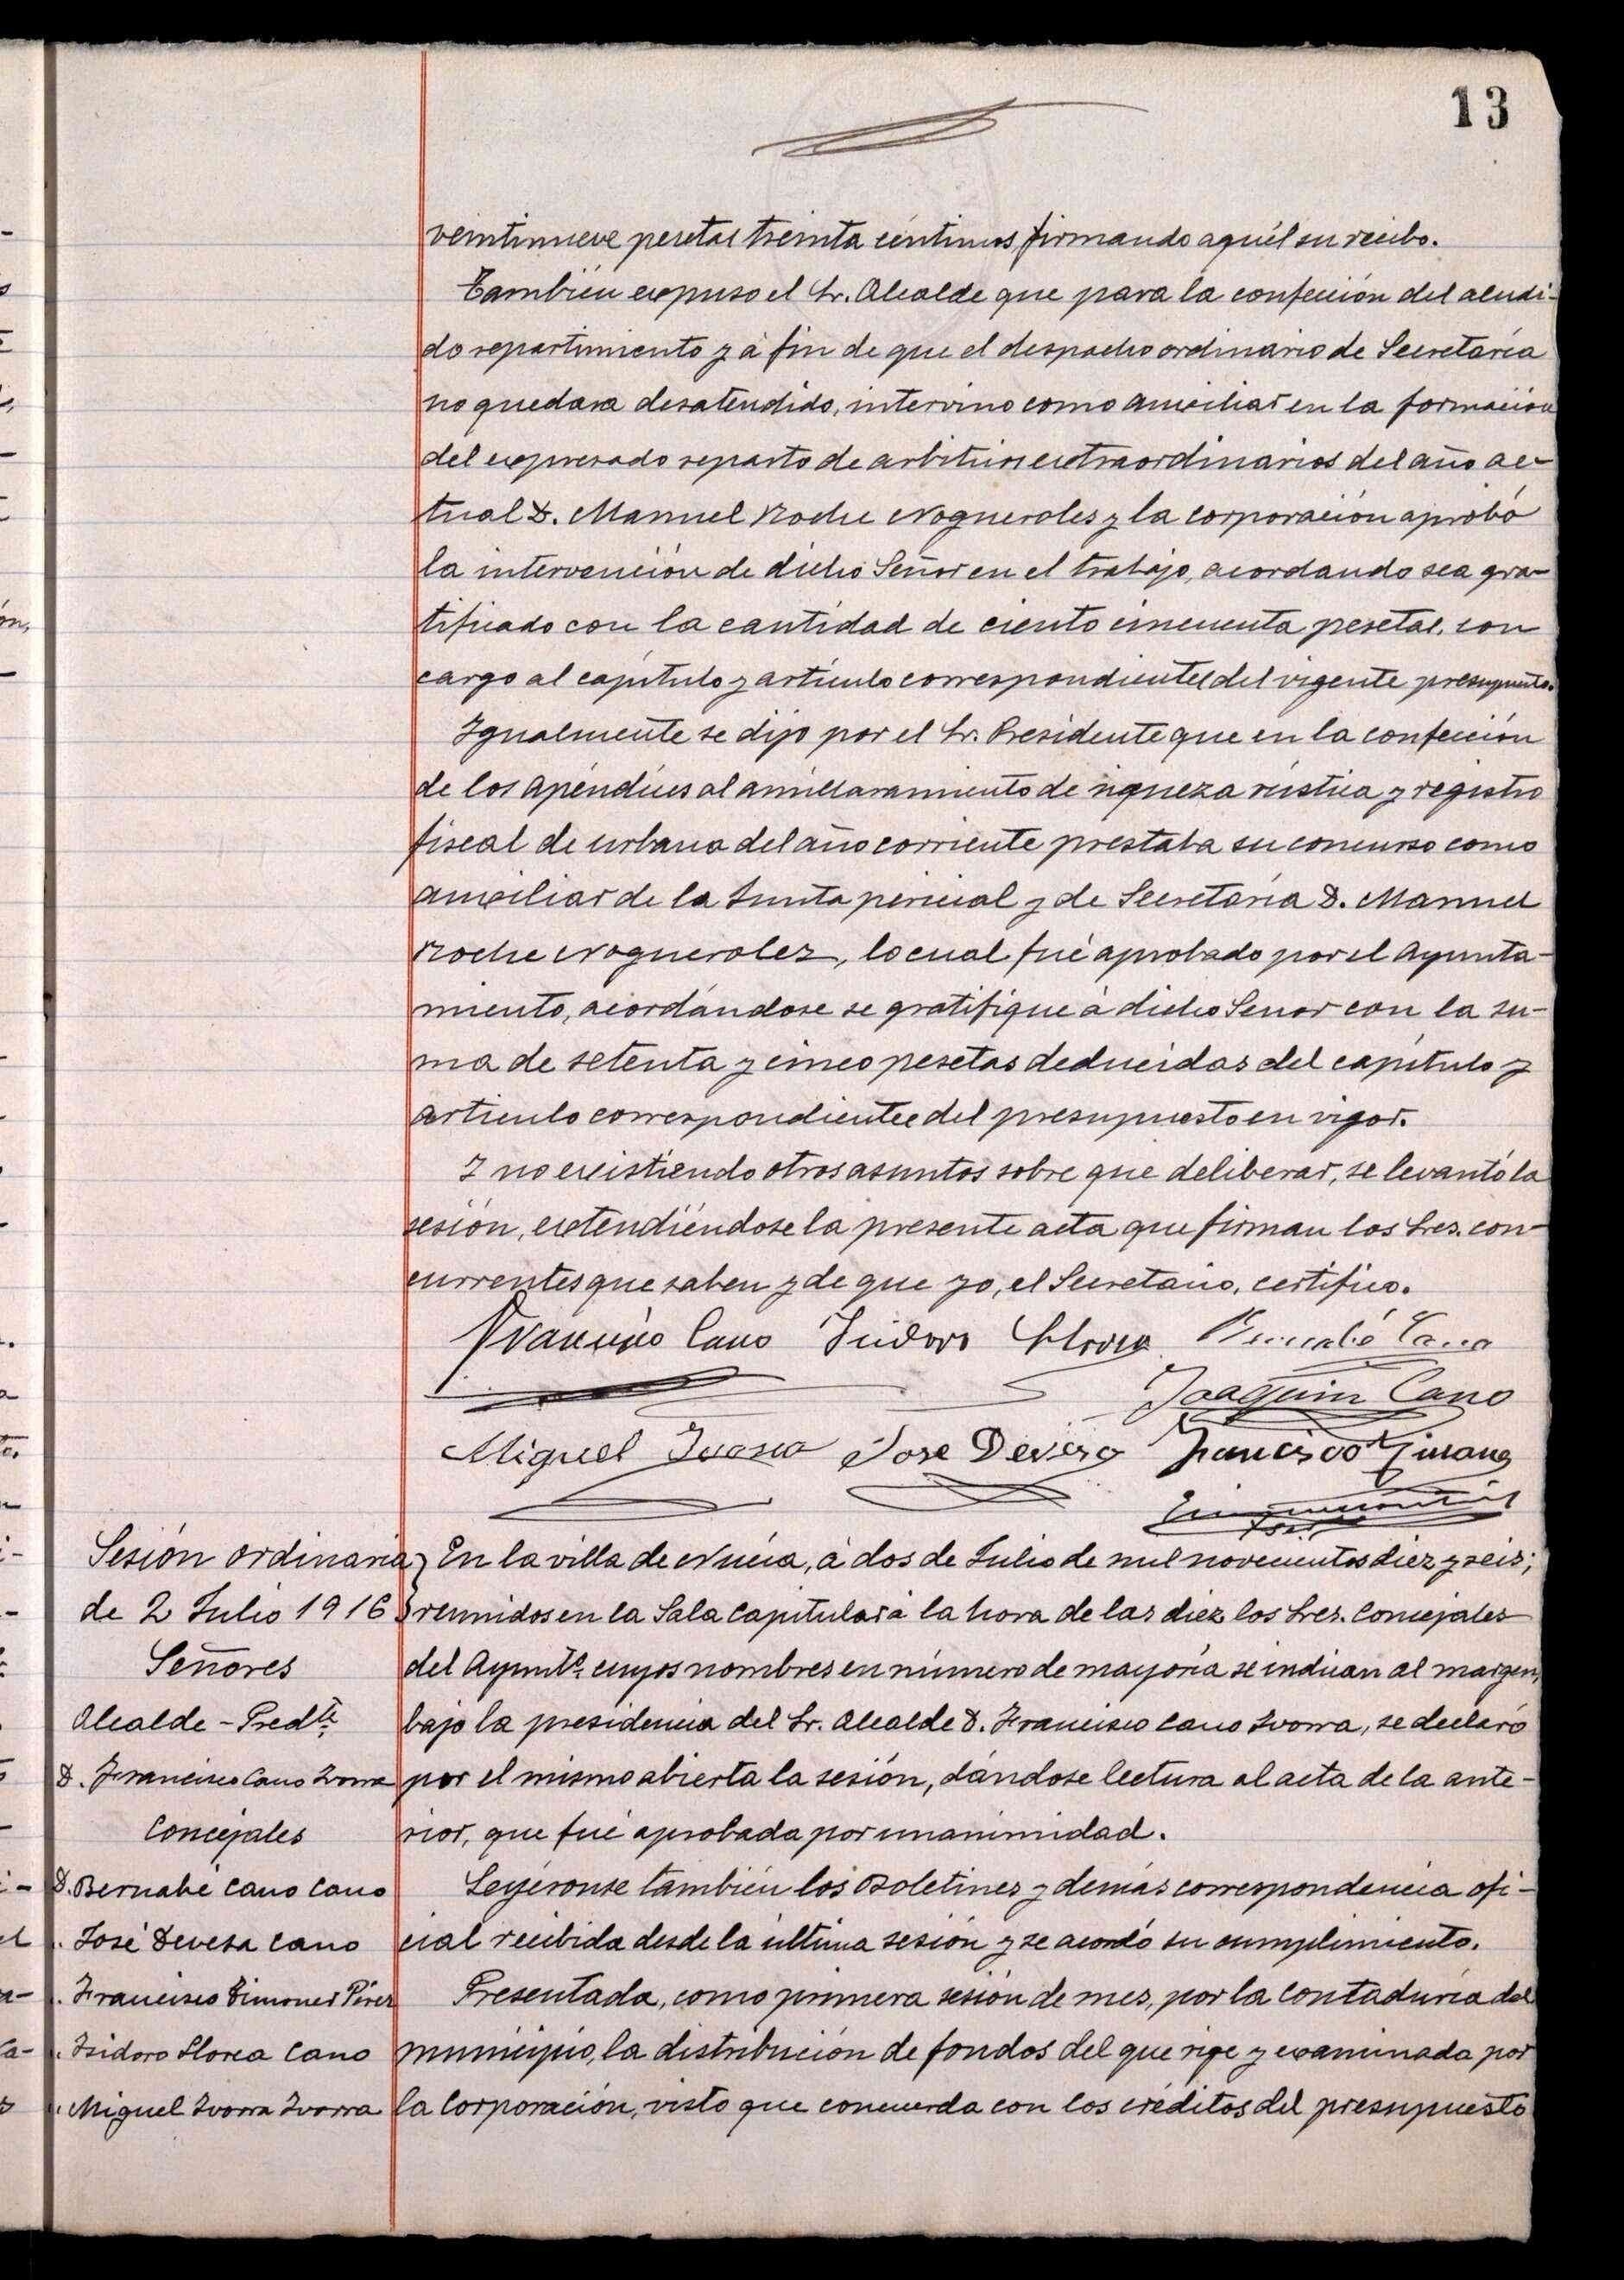 13
veintinueve pesetas treinta céntimos firmando aquél su recibo.
También expuso el Sr. Alcalde que para la confección del aludi-
do repartimiento y á fin de que el despacho ordinario de Secretaría
no quedara desatendido, intervino como auxiliar en la formación
del expresado reparto de arbitrios extraordinarios del año ac-
tual D. Manuel Roche Nogueroles y la corporación aprobó
la intervención de dicho Señor en el trabajo, acordando sea gra-
tificado con la cantidad de ciento cincuenta pesetas, con
cargo al capítulo y artículo correspondientes del vigente presupuesto.
Igualmente se dijo por el Sr. Presidente que en la confección
de los apéndices al amillaramiento de riqueza rústica y registro
fiscal de urbana del año corriente prestaba su concurso como
auxiliar de la Junta pericial y de Secretaría D. Manuel
Roche Nogueroles, lo cual fué aprobado por el Ayunta-
miento, acordándose se gratifique á dicho Senor con la su-
ma de setenta y cinco pesetas deducidas del capítulo y
articulo correspondientes del presupuesto en vigor.
Y no existiendo otros asuntos sobre que deliberar, se levantó la
sesión, extendiéndose la presente acta que firman los Sres. con-
currentes que saben y de que yo, el Secretario, certifico.
Francisco Cano Isidoro Llorca Bernabé Cano
Joaquin Cano
Miguel Ivorra Jose Devesa Francisco Simones
Sesión ordinaria
de 2 Julio 1916
Señores
Alcalde - Predte.
D. Francisco Cano Ivorra
Concejales
D. Bernabé Cano Cano
" José Devesa Cano
" Francisco Simones Pérez
" Isidoro Llorca Cano
" Miguel Ivorra Ivorra
En la villa de Nucia, á dos de Julio de mil novecientos diez y seis;
reunidos en la Sala Capitular á la hora de las diez los Sres. Concejales
del Ayuntº. cuyos nombres en número de mayoría se indican al margen,
bajo la presidencia del Sr. Alcalde D. Francisco Cano Ivorra, se declaró
por el mismo abierta la sesión, dándose lectura al acta de la ante-
rior, que fué aprobada por unanimidad.
Leyéronse también los Boletines y demás correspondencia ofi-
cial recibida desde la última sesión y se acordó su cumplimiento.
Presentada, como primera sesión de mes, por la Contaduría del
municipio, la distribución de fondos del que rige y examinada por
la Corporación, visto que concuerda con los créditos del presupuesto